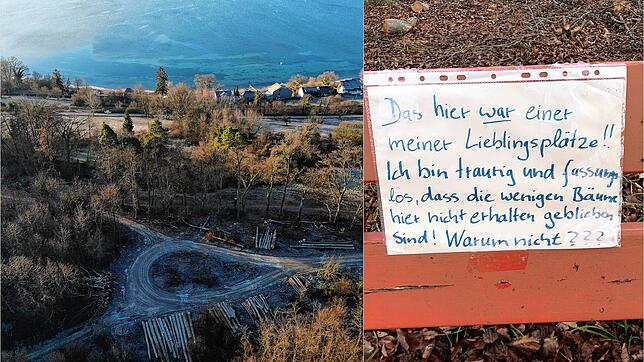 Das hier war einer
meiner Lieblingsplätze!!
Ich bin traurig und fassungs
los, dass die wenigen Bäume
hier nicht erhalten geblieben
sind! Warum nicht???